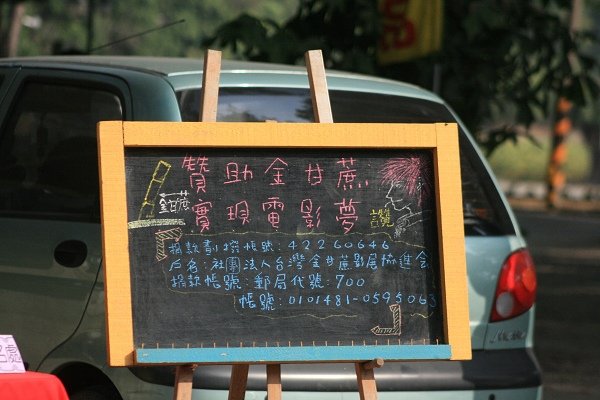 贊助金甘蔗
實現電影夢
金甘蔗
捐款劃撥帳號：42260646
戶名：社團法人台灣金甘蔗影展協進會
捐款帳號：郵局代號：700
帳號：0101481-0595063
處